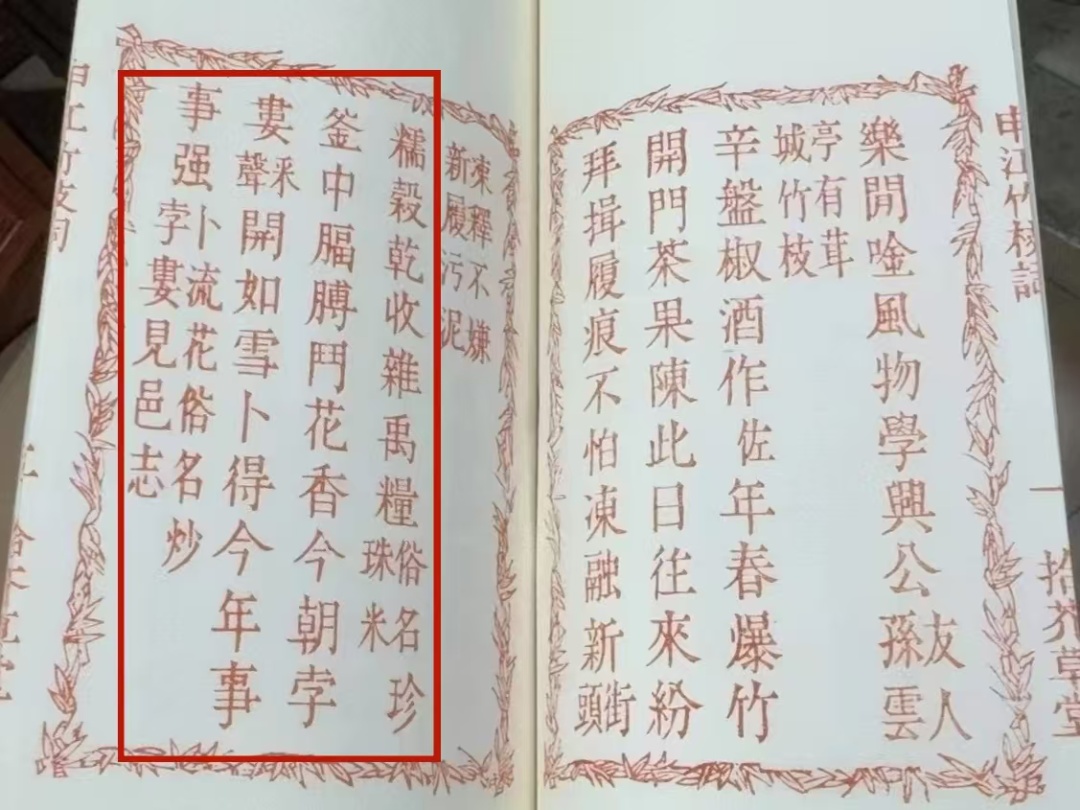 申江竹枝詞 一 拾芥草堂
樂閒唫風物學興公友人孫雲
亭有茸城竹枝
辛盤椒酒作佐年春爆竹
開門茶果陳此日往來紛
拜揖履痕不怕凍融新街頭
凍釋不嫌新履污泥
糯穀乾收雜禹糧俗名珍珠米
釜中腷膊鬥花香今朝孛
婁釆聲開如雪卜得今年事
事强卜流花俗名炒孛婁見邑志